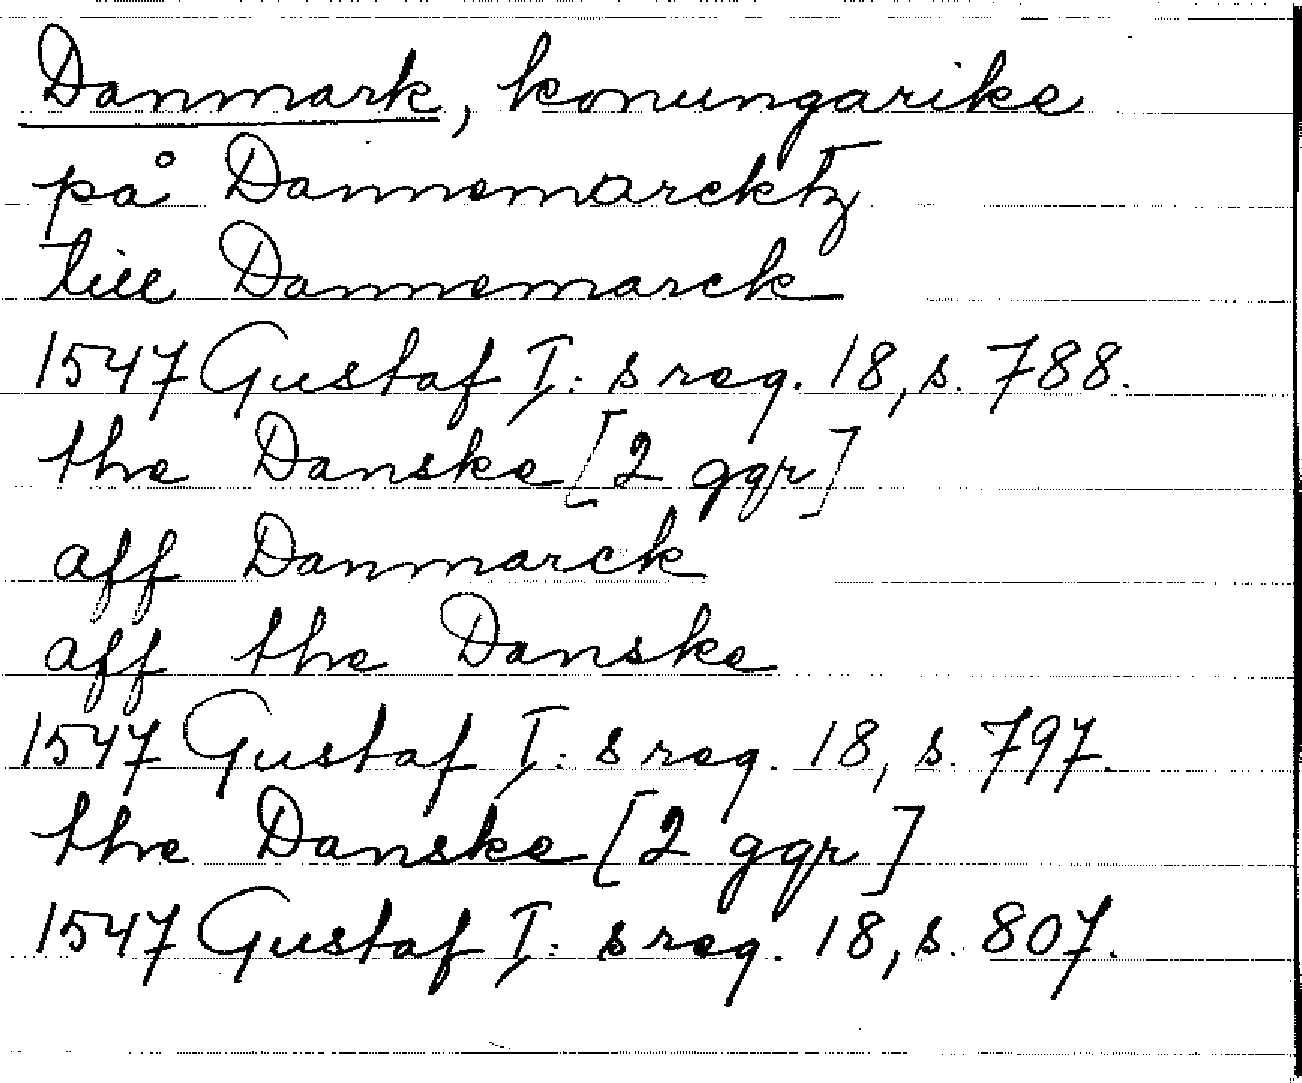 Danmark, konungarike
på Dannemarcktz
till Dannemarck
1547 Gustaf I: s reg. 18, s. 788.
the Danske [2 ggr]
aff Danmarck
aff the Danske
1547 Gustaf I: s reg. 18, s. 797.
the Danske [2 ggr]
1547 Gustaf I: s reg. 18, s. 807.